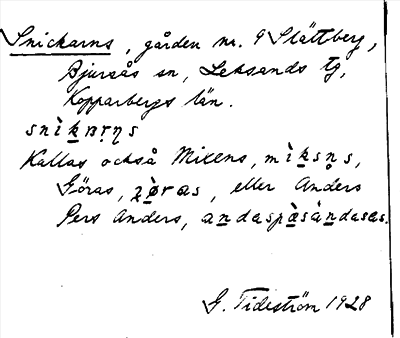 Snickarns, gården nr. 9 Slättberg,
Bjursås sn, Leksands tg,
Kopparbergs län.
snìkɐrṇs
Kallas också Mixens, mìksṇs,
Göras, jòras, eller Anders
Pers Anders, andaspæ̀sàndasas.
G. Tideström 1928